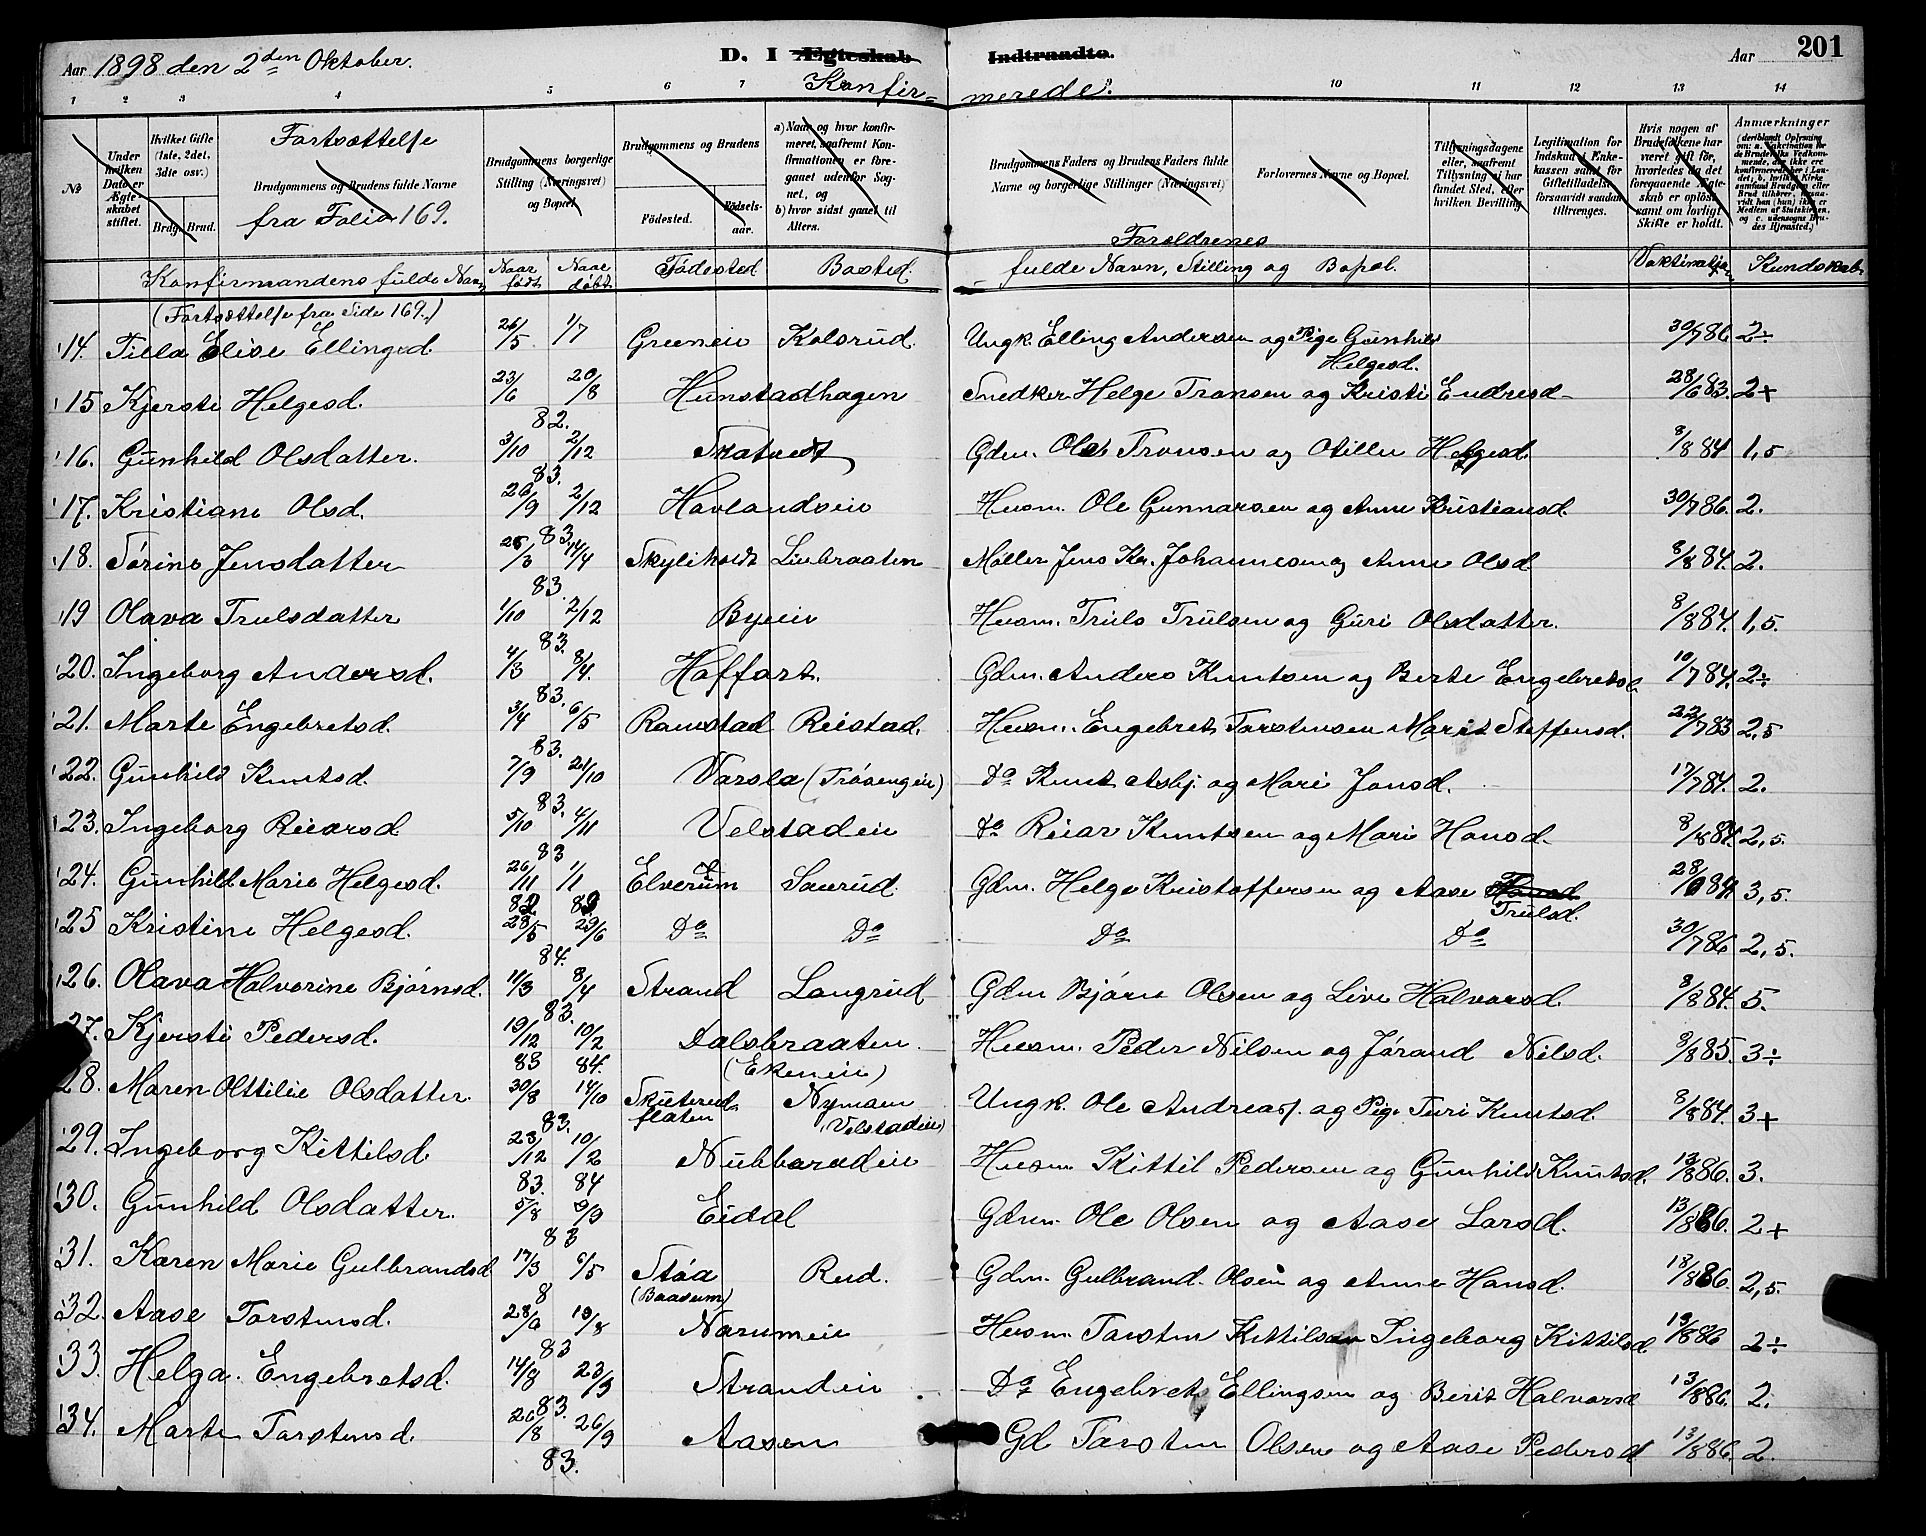 Aar 1898 den 2den Oktober. D. I Ægteskab Indtraadte. Aar 201
Konfirmerede.
1 2 3 4 5 6 7 9 10 11 12 13 14
No
Under hvilken Dato er Ægteskabet stiftet.
Hvilket Gifte (1ste, 2det, 3die osv.)
Brdg. Brud.
Fortsættelse
Brudgommens og Brudens fulde Navne
fra Folio 169.
Brudgommens borgerlige Stilling (Næringsvei) og Bopæl
Brudgommens og Brudens
Fødested. Fødselsaar.
a) Naar og hvor konfirmeret, saafremt Konfirmationen er foregaaet udenfor Sognet, og
b) hvor sidst gaaet til Alters.
Brudgommens Faders og Brudens Faders fulde Navne og borgerlige Stillinger (Næringsvei)
Forlovernes Navne og Bopæl.
Tillysningsdagene eller, saafremt Tillysning ei har fundet Sted, efter hvilken Bevilling
Legitimation for Indskud i Enkekassen samt for Giftetilladelse forsaavidt saadan tiltrænges.
Hvis nogen af Brudefolkene har været gift før, hvorledes da det foregaaende Ægteskab er opløst samt om lovligt Skifte er holdt.
Anmærkninger
Konfirmandens fulde Navn Naar født Naar døbt Fødested Bosted. Forældrenes fulde Navn, Stilling og Bopæl. Vaktination Kundskab
(Fortsættelse fra Side 169.)
14. Tilla Elise Ellingsd. 26/5 1/7 Greeneie Kolsrud. Ungk. Elling Andersen og Pige Gunhild Helgesd. 30/786 2÷
15 Kjersti Helgesd. 23/6 20/8 82. Hunstadhagen Snedker Helge Transen og Kristi Endresd. 28/683. 2+
16. Gunhild Olsdatter. 3/10 2/12 83. Skatvedt Gdm. Ole Tronsen og Otillie Helgesd. 8/884 1,5
17. Kristiane Olsd. 26/9 2/12 83. Havlandseie Husm. Ole Gunnarsen og Anne Kristiansd. 30/786. 2.
18. Sørine Jensdatter 26/3 14/4 83. Skyliholdt Liebraaten Møller Jens Kr. Johannesen og Anne Olsd. 8/884. 2.
19 Olava Trulsdatter 1/10 2/12 83. Byeie Husm. Truls Trulsen og Guri Olsdatter. 8/884. 1,5.
20. Ingeborg Andersd. 4/3 8/4. 83. Haffart. Gdm. Anders Knutsen og Berte Engebretsd. 10/784. 2÷
21. Marte Engebretsd. 3/4 6/5 83. Ramstad Reistad. Husm. Engebret Torstensen Marit Steffensd. 22/783 2,5
22. Gunhild Knutsd. 7/9 21/10 83. Varsla (Trøsengeie) Do Knut Asbj. og Mari Jonsd. 17/784. 2.
23. Ingeborg Reiarsd. 5/10 4/11 83 Velstadeie Do Reiar Knutsen og Mari Hansd. 8/884. 2,5.
24. Gunhild Marie Helgesd. 26/11 82 1/1 83 Elverum Saurud. Gdm. Helge Kristoffersen og Aase Trulsd. 28/684. 3,5.
25 Kristine Helgesd. 28/5 29/6 84. Do Do Do Do 30/786 2,5.
26. Olava Halvorine Bjørnsd. 11/3 8/4 83. Strand Langrud Gdm Bjørn Olsen og Live Halvorsd. 8/884. 5.
27. Kjersti Pedersd. 19/12 83 10/2 84. Dalsbraaten. (Ekeneie) Husm. Peder Nilsen og Jørand Nilsd. 8/885. 3÷
28. Maren Ottilie Olsdatter. 30/8 14/10 83. Skuterudflaten Nymaen (Velstadeie) Ungk. Ole Andreas. og Pige Turi Knutsd. 8/884. 3+
29. Ingeborg Kittilsd. 23/12 83. 10/2 84 Nubberudeie Husm. Kittil Pedersen og Gunhild Knutsd. 13/886. 3.
30. Gunhild Olsdatter. 5/8 9/9 83 Eidal Gdm. Ole Olsen og Aase Larsd. 13/886. 2+
31. Karen Marie Gulbrandsd 17/3 6/5 8 Støa (Baasum) Rud. Gdm. Gulbrand. Olsen og Anne Hansd. 13/886. 2,5.
32. Aase Torstensd. 28/6 19/8 83 Narumeie Husm. Torsten Kittilsen Ingeborg Kittilsd. 13/886 2÷
33. Helga. Engebretsd. 14/8 23/9 83. Strandeie Do Engebret Ellingsen og Berit Halvorsd 13/886. 2.
34. Marte Torstensd. 26/8 26/9 83. Aasen Gd Torsten Olsen og Aase Pedersd 13/886. 2.